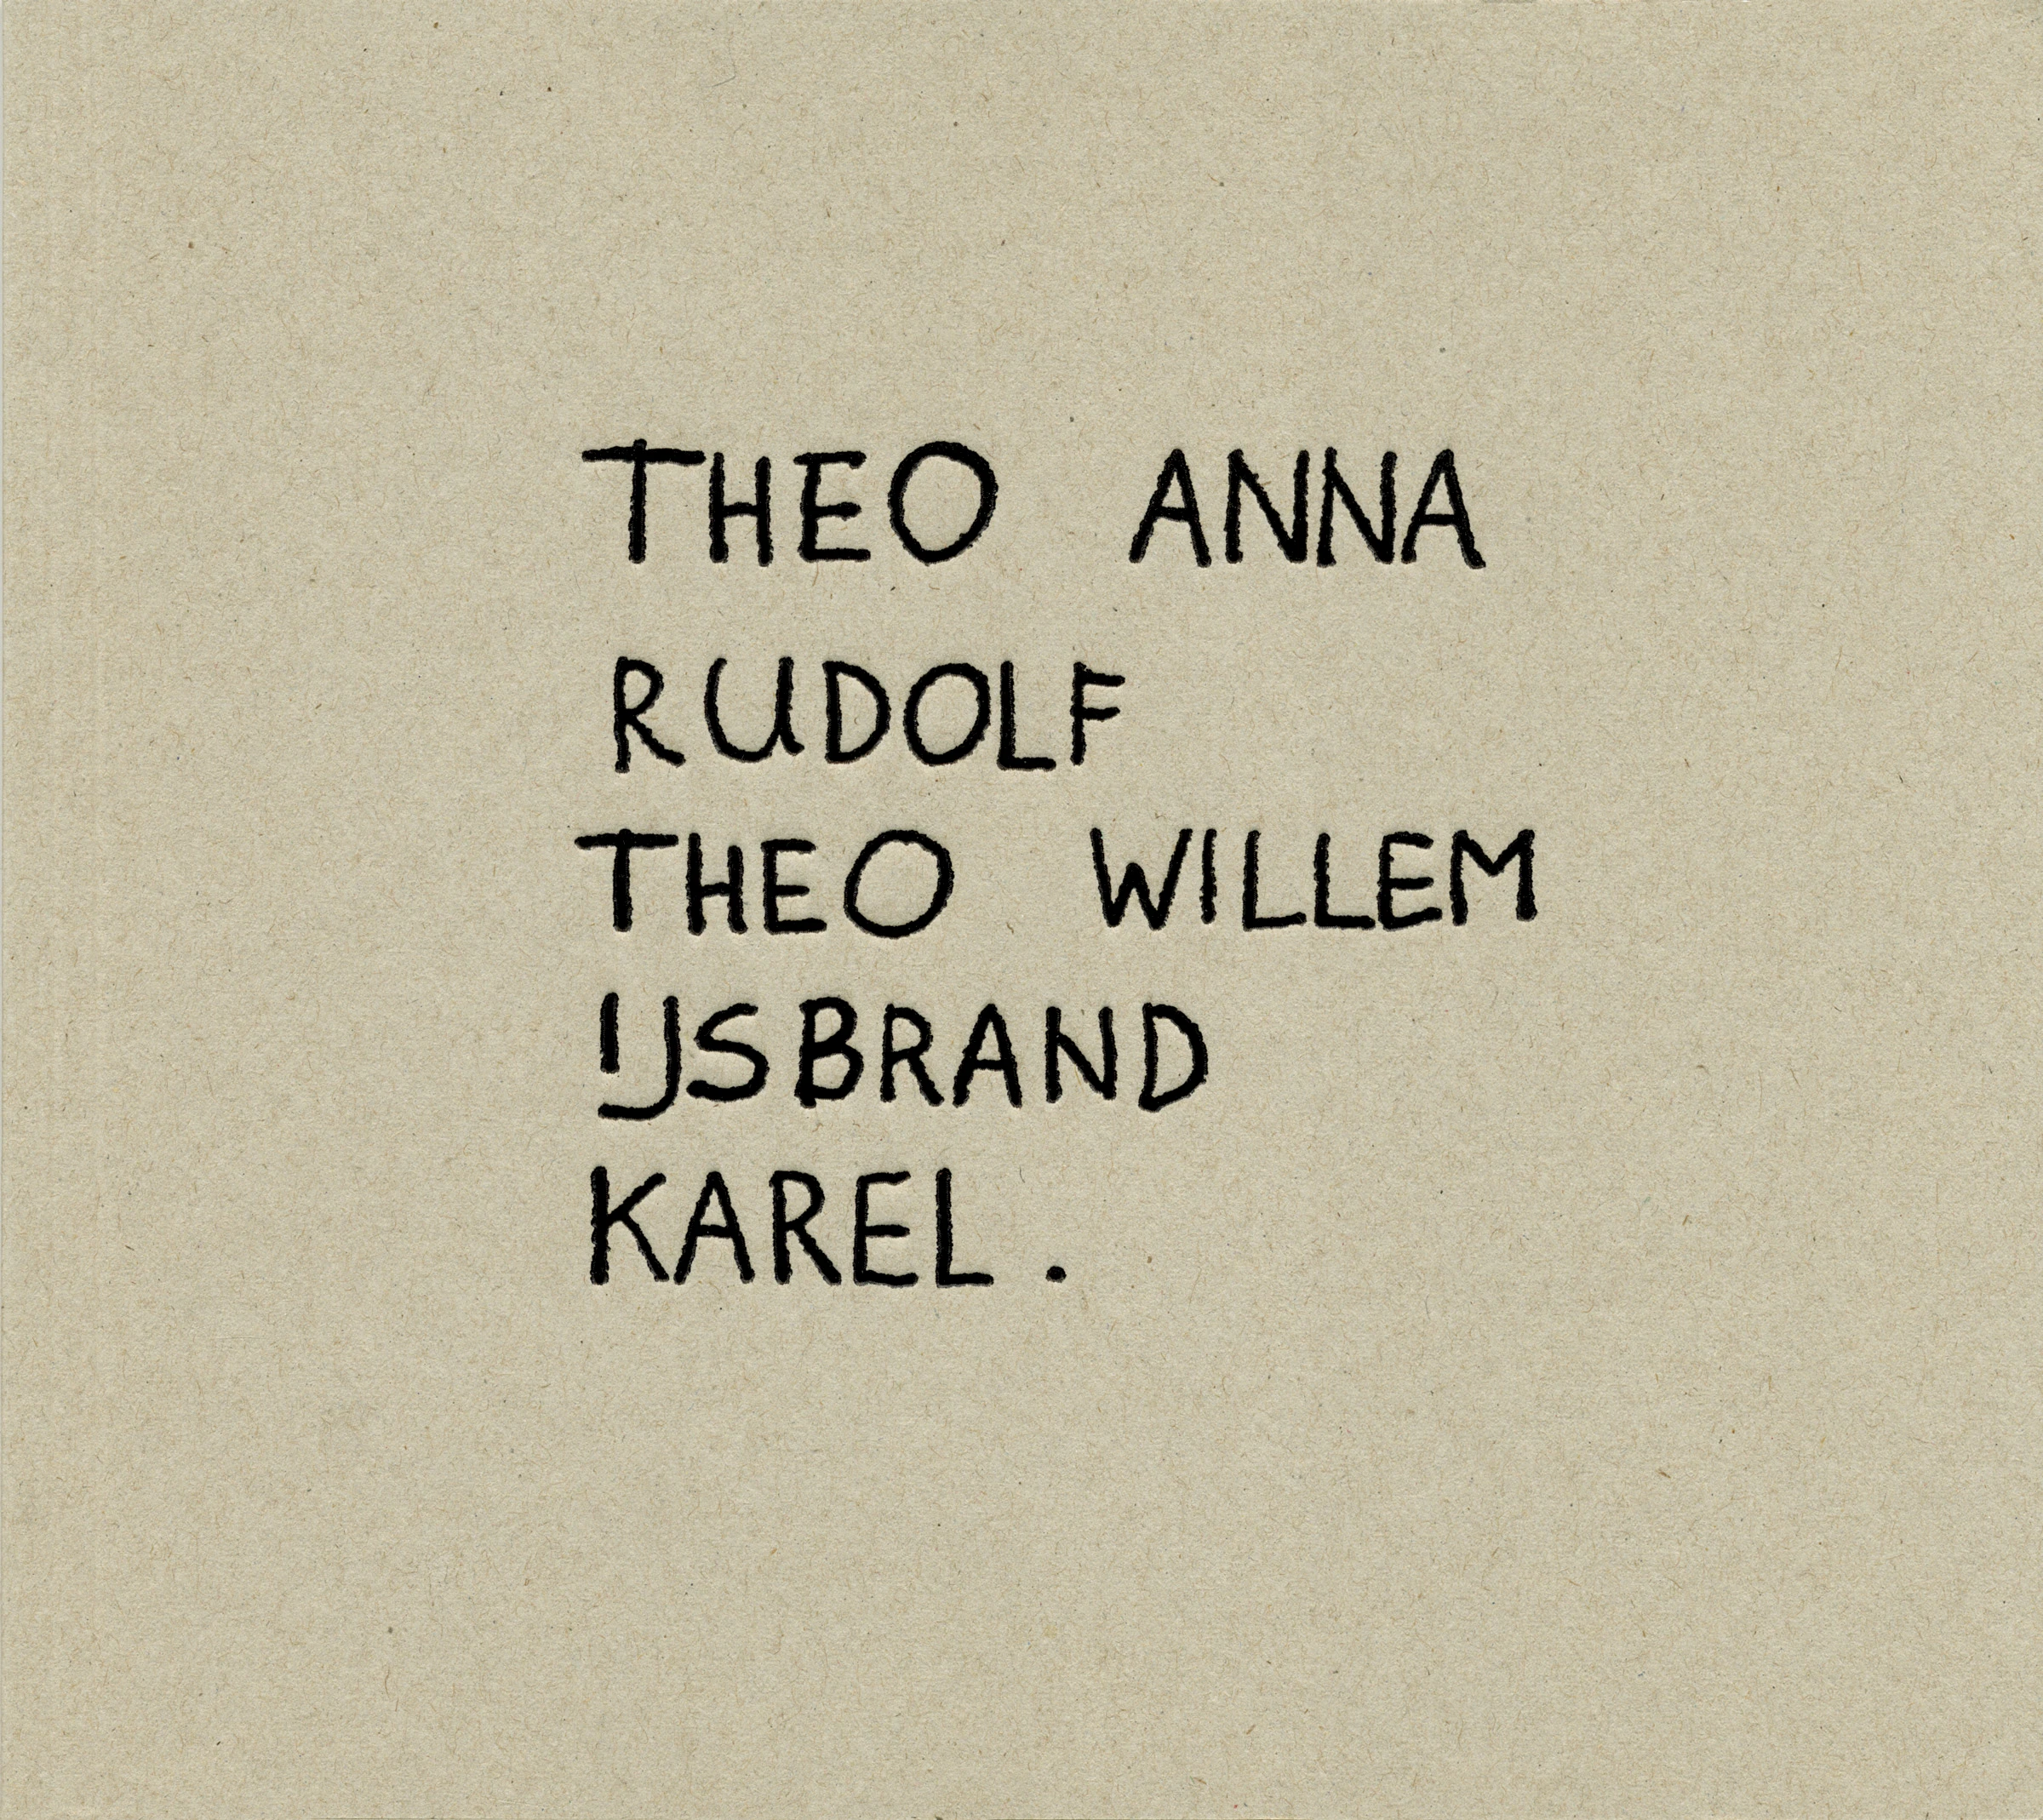 THEO ANNA
RUDOLF
THEO WILLEM
IJSBRAND
KAREL .